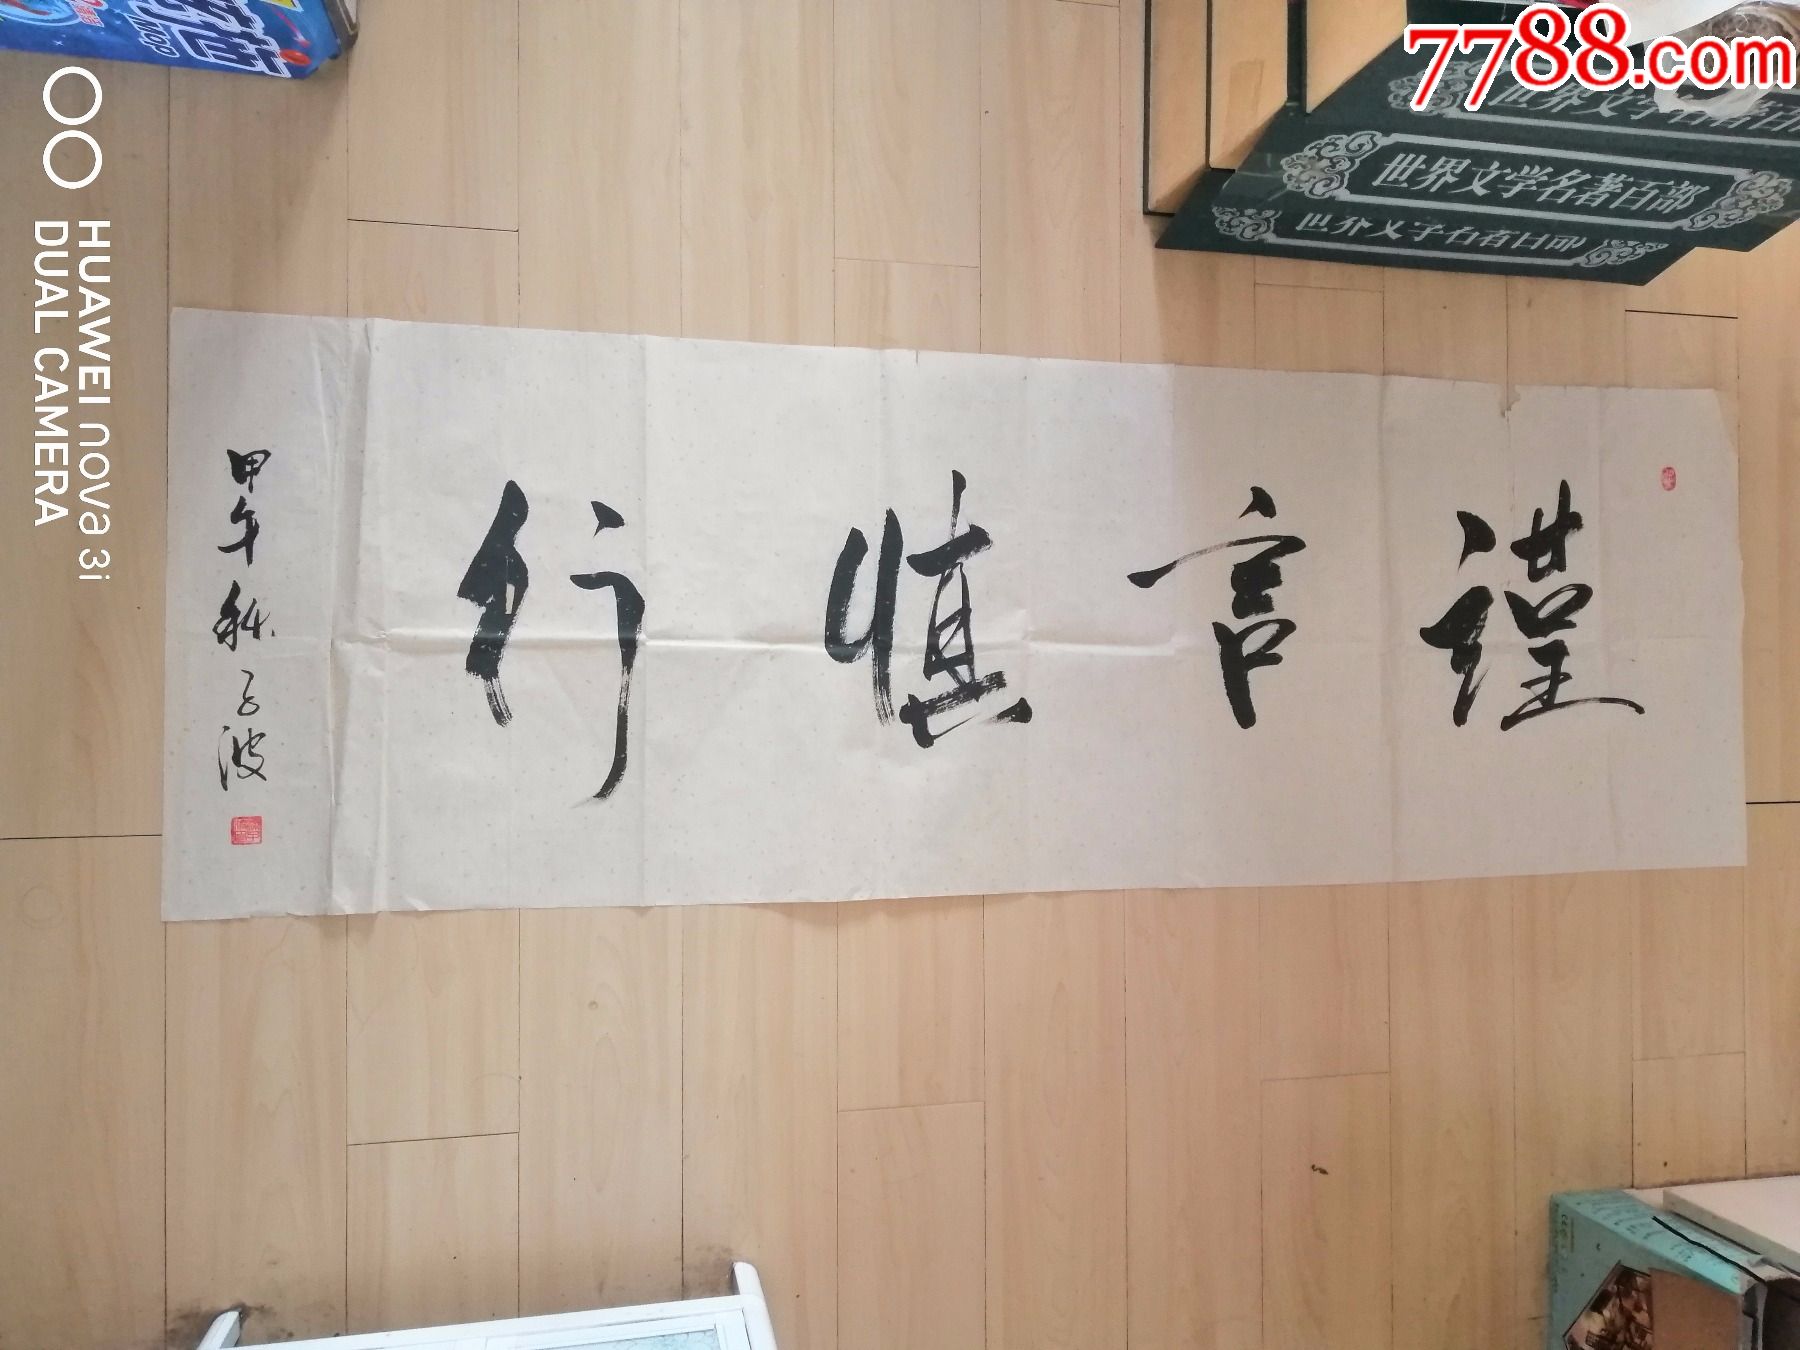 7788.com
世界文学名著百部
世界文学名著百部
世界文学名著百部
謹言慎行
甲午秋
波
HUAWEI nova 3i
DUAL CAMERA